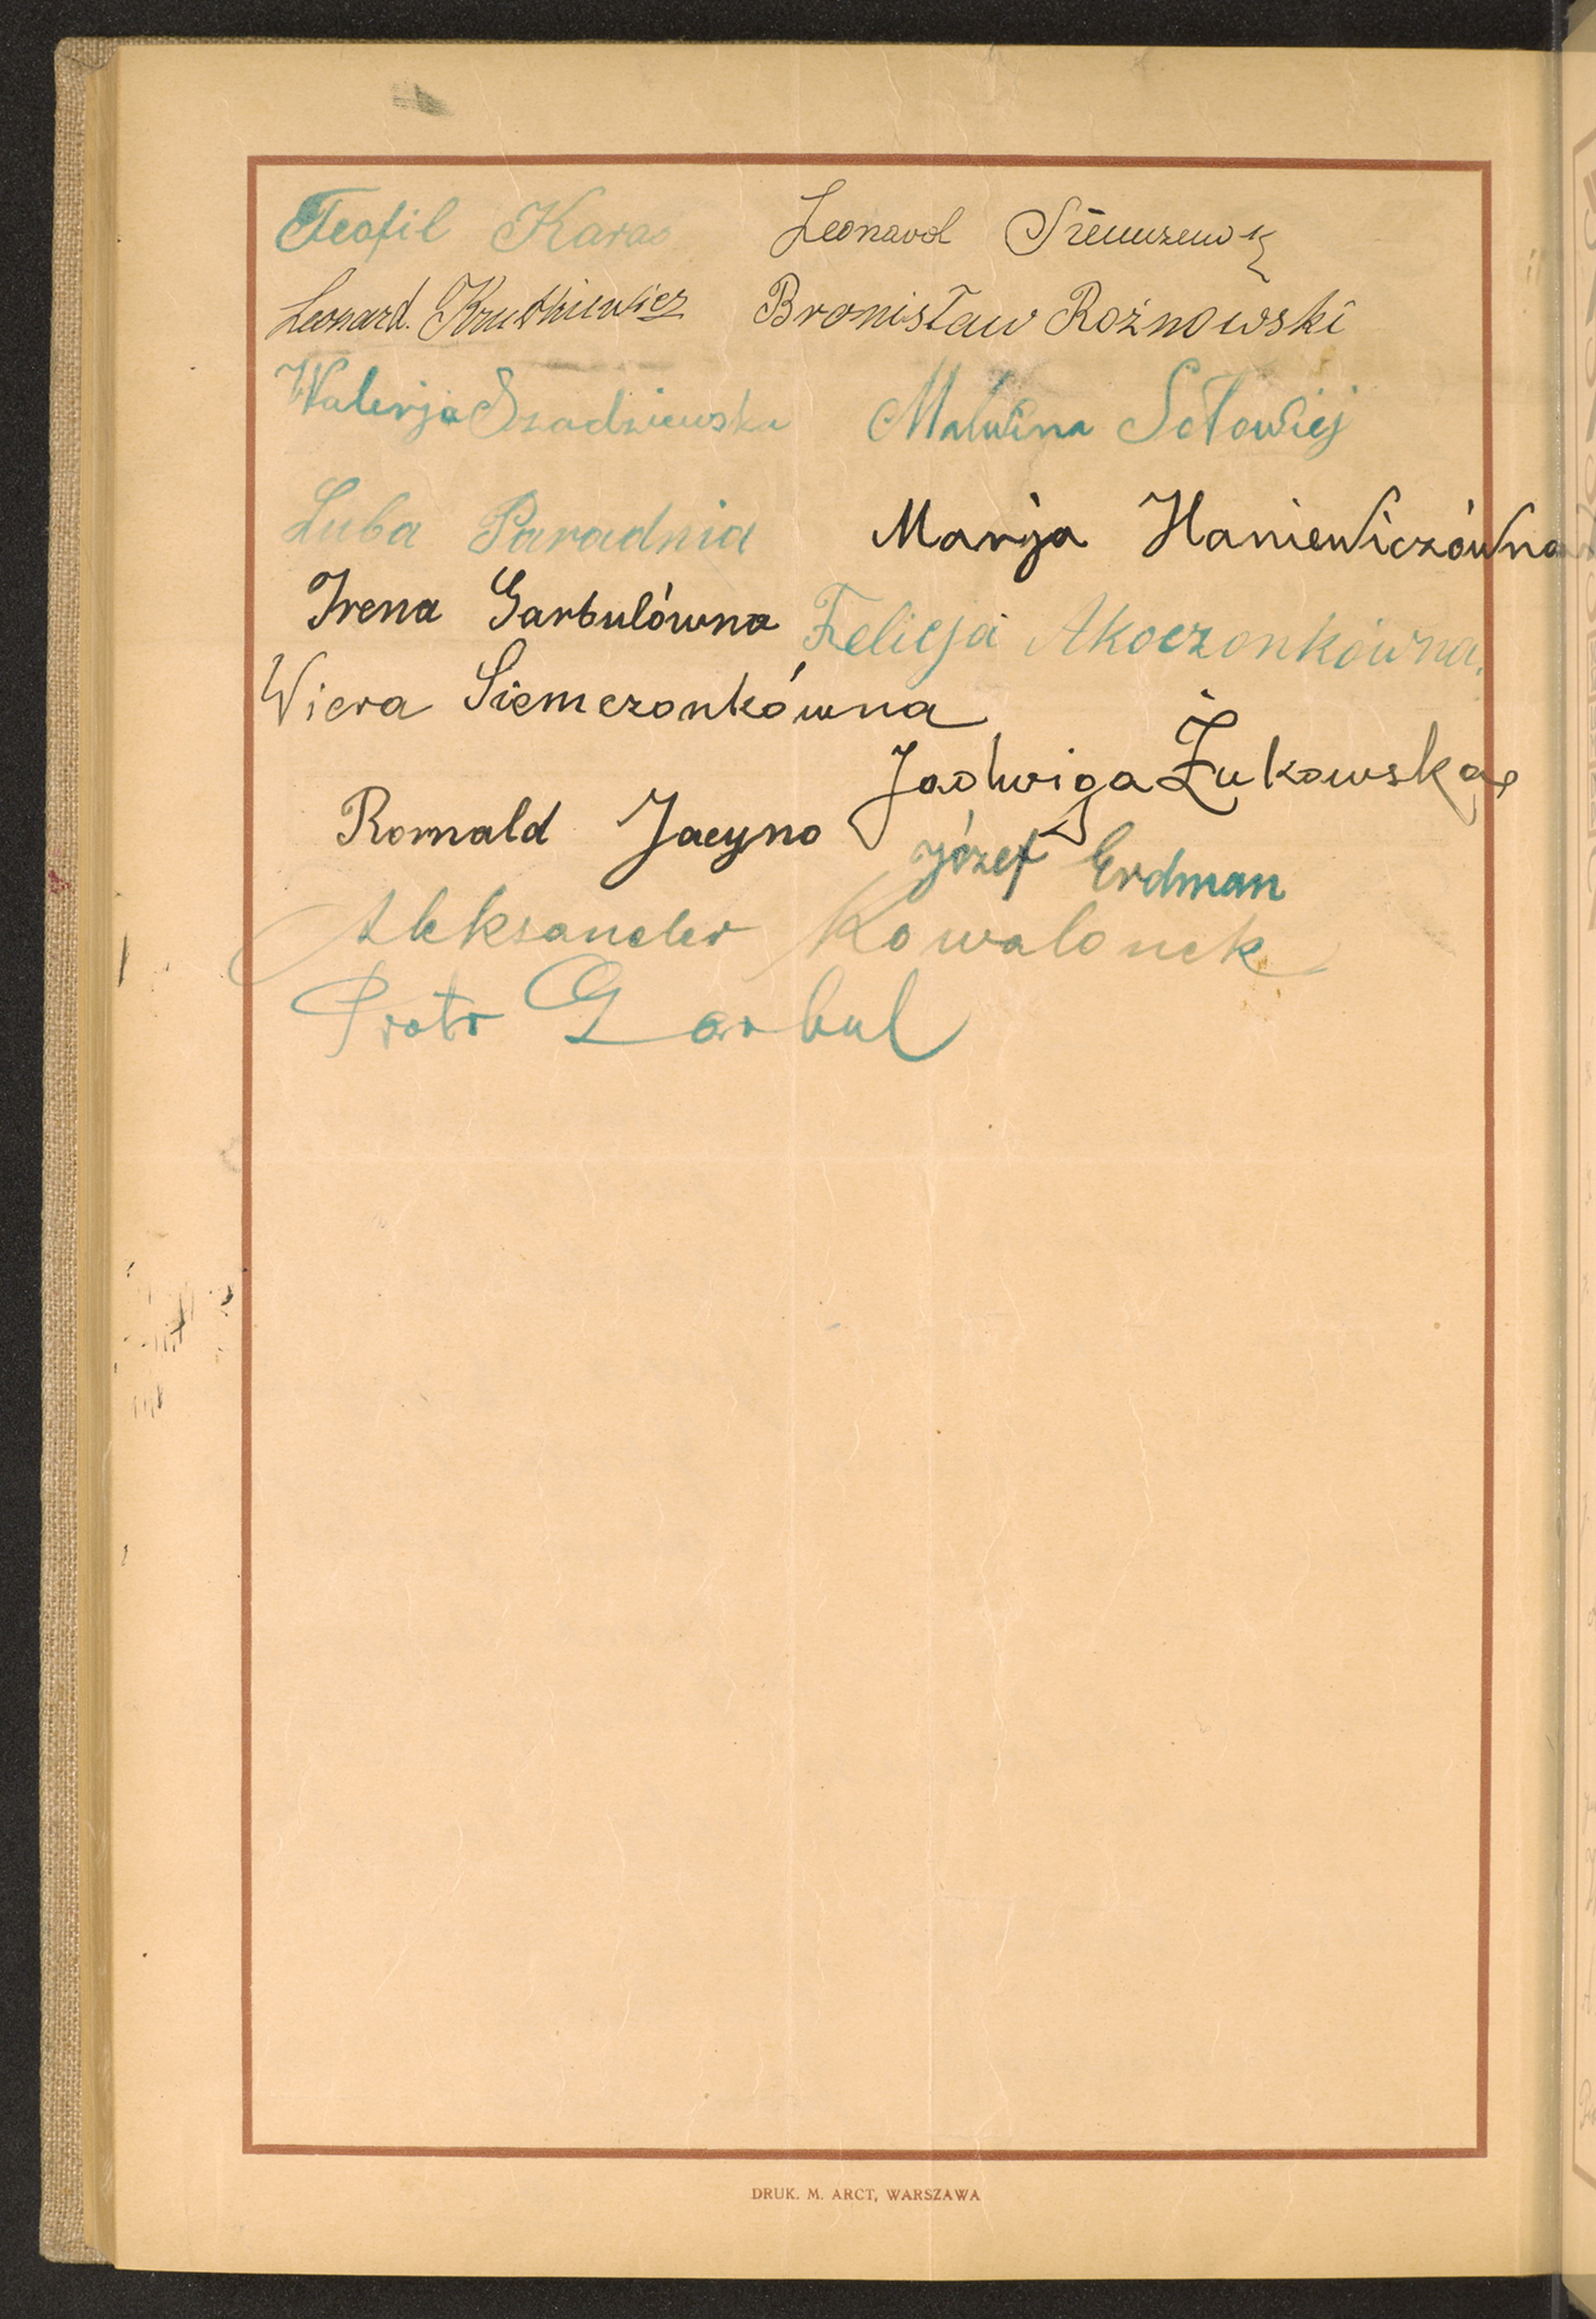 Teofil Karas Leonard
Leonard. Krutkiewicz Bronisław Rożnowski
Walerja Szadziewska Malwina Sołowiej
Luba Paradnia Marja Haniewiczówna
Irena Garbulówna Felicja Akoczonkówna.
Wiera Siemczonkówna
Jadwiga Żukowska
Romald Jacyno
Józef Erdman
Aleksander Kowalonek
Piotr Garbul
DRUK. M. ARCT, WARSZAWA